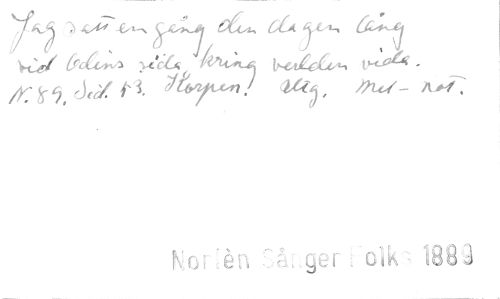 Jag satt en gång den dagen lång
vid Odins sida kring verlden vida.
N. 89. Sid. 53. Korpen. Utg. Mel-not.
Norlèn Sånger Folks 1889